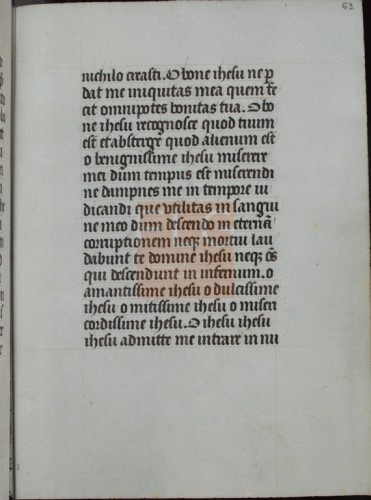 63
nichilo creasti. O bone ihesu ne p̄
dat me iniquitas mea quem fe
cit omnipotēs bonitas tua. O bo
ne ihesu recognosce quod tuum
est et absterge quod alienum est
o benignissime ihesu miserere
mei dum tempus est miserendi
ne dampnes me in tempore iu
dicandi que vtilitas in sangui
ne meo dum descendo in eternā
corruptionem neqꝫ mortui lau
dabunt te domine ihesu neqꝫ ōs
qui descendunt in infernum. o
amantissime ihesu o dulcissime
ihesu o mitissime ihesu o miseri
cordissime ihesu. O ihesu ihesu
ihesu admitte me intrare in nu